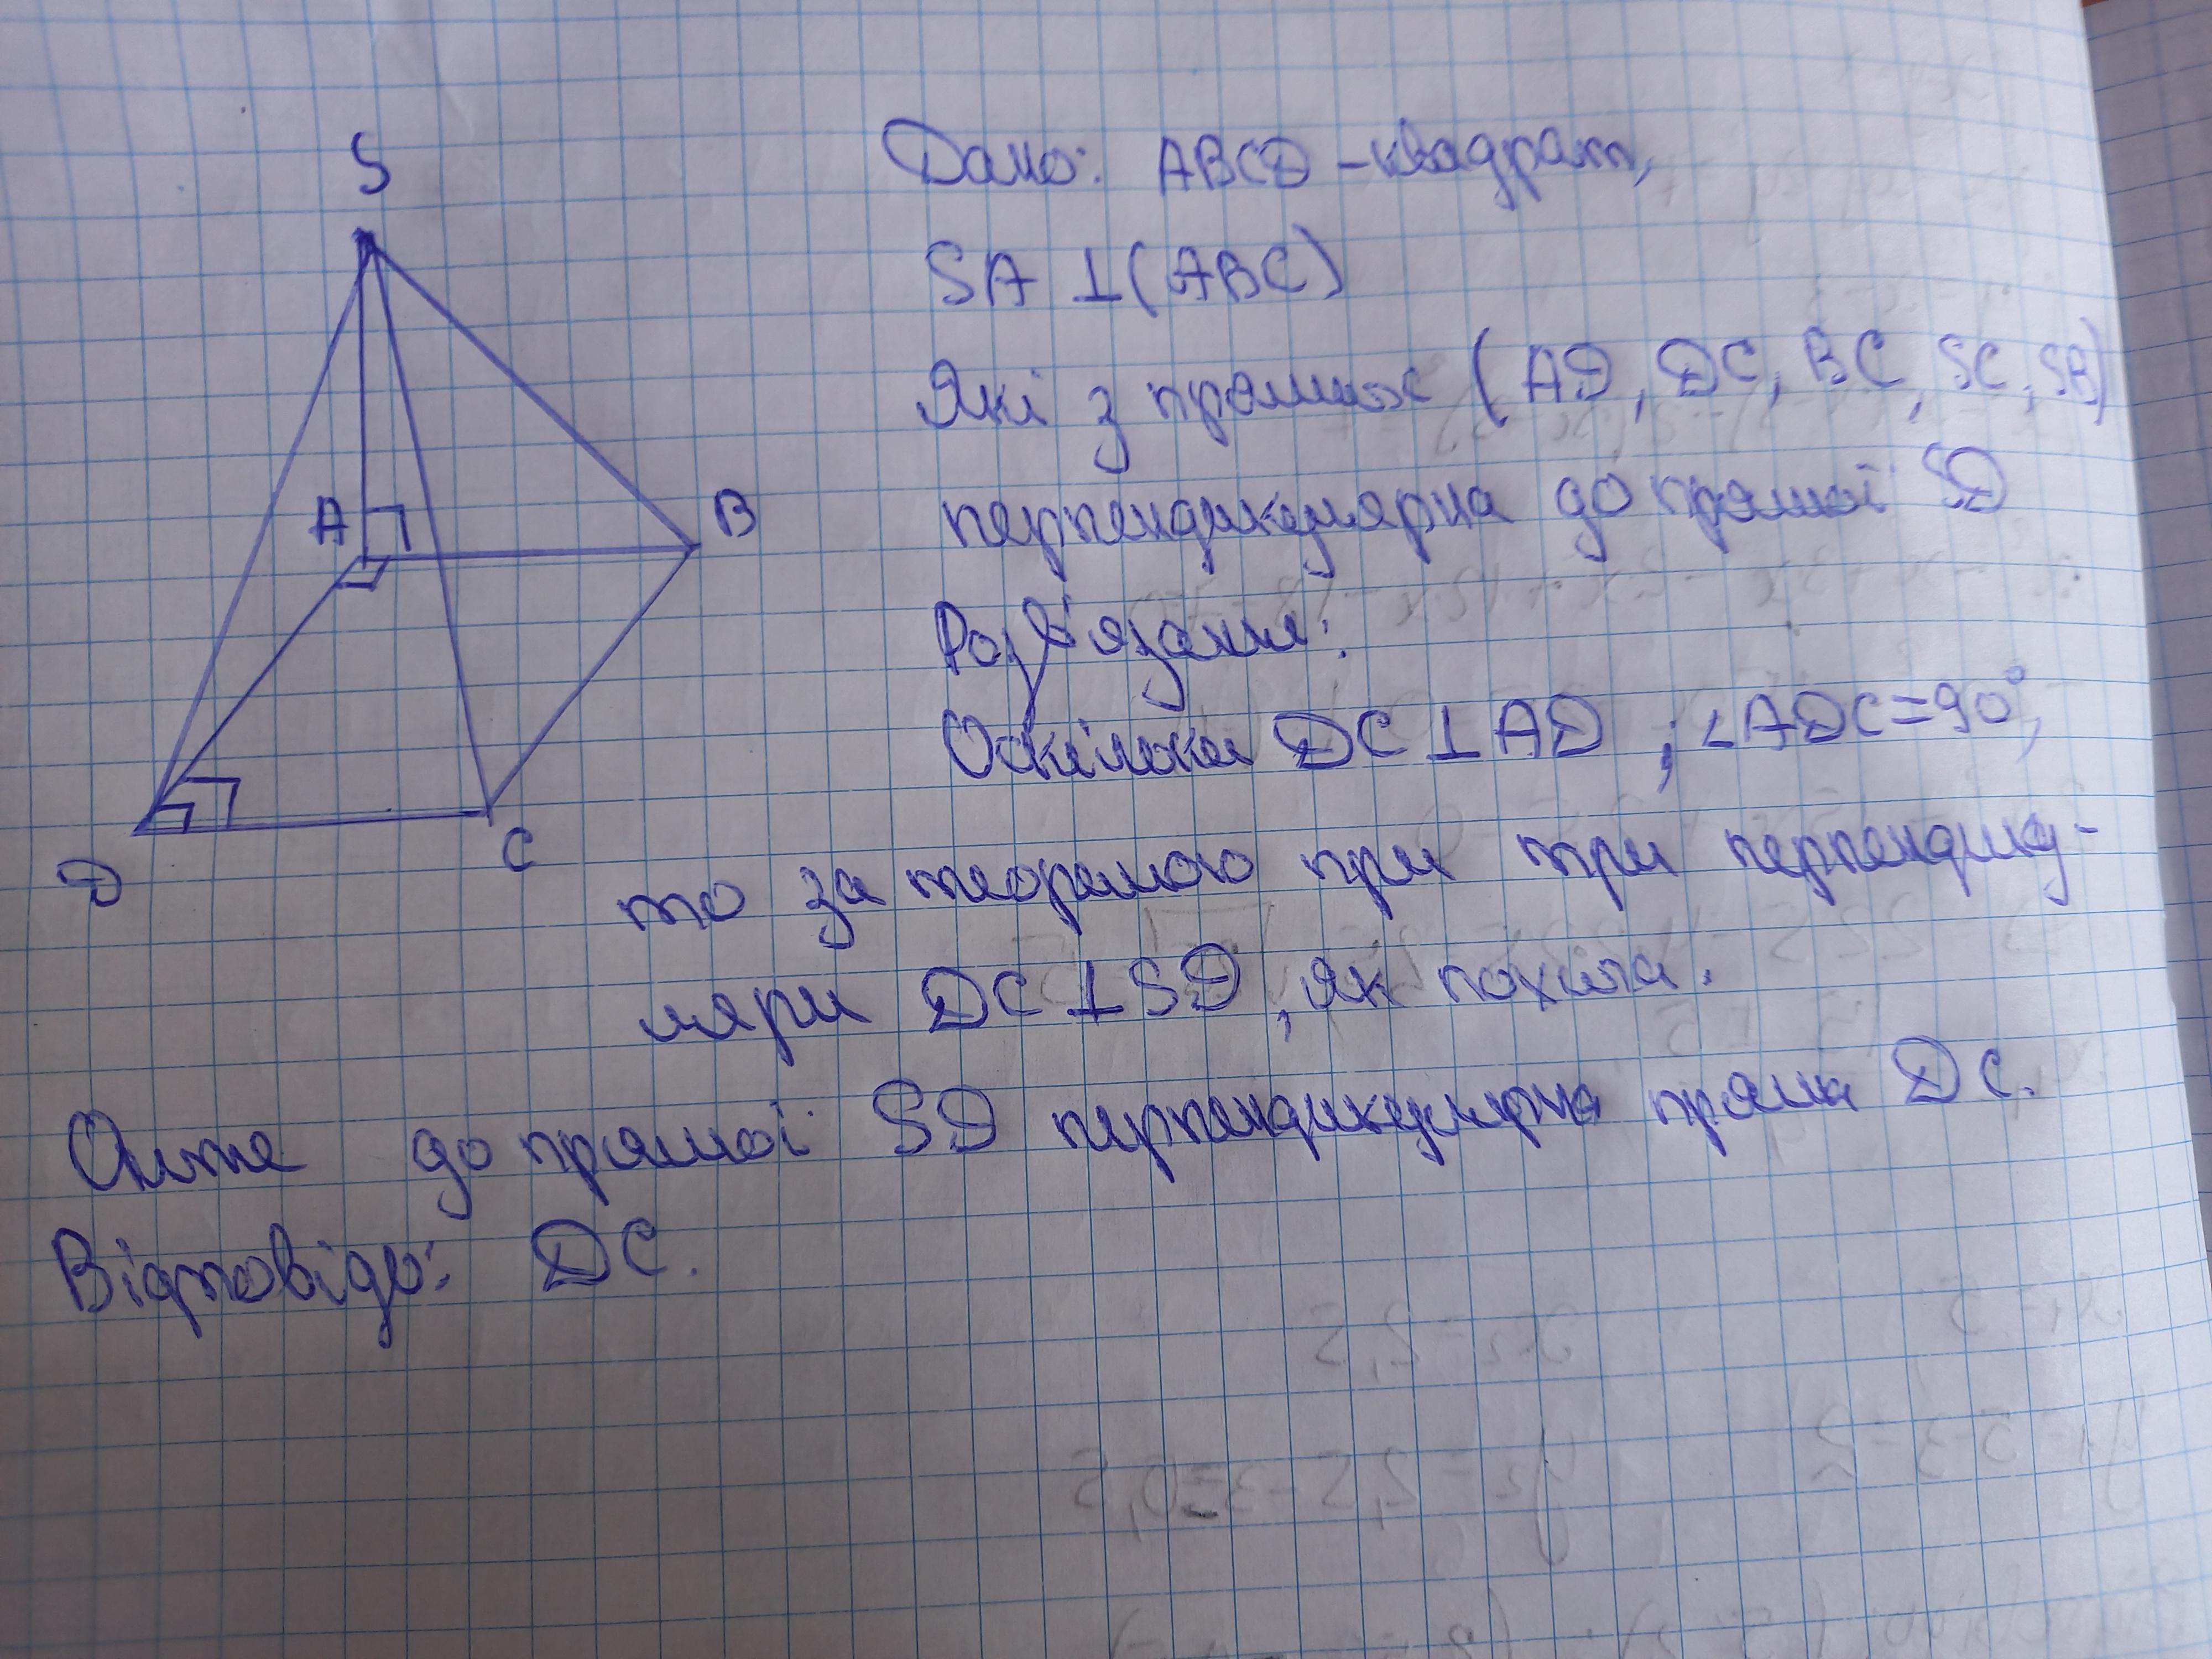 S
Дано: ABCD - квадрат,
SA ⊥ (ABC)
Які з прямих (AD, DC, BC, SC, SA)
A
B
перпендикулярна до прямої SD
Розв'язання:
Оскільки DC ⊥ AD, ∠ADC = 90°,
D
C
то за теоремою при три перпендику-
ляри DC ⊥ SD, як похила.
Отже до прямої SD перпендикулярна пряма DC.
Відповідь: DC.